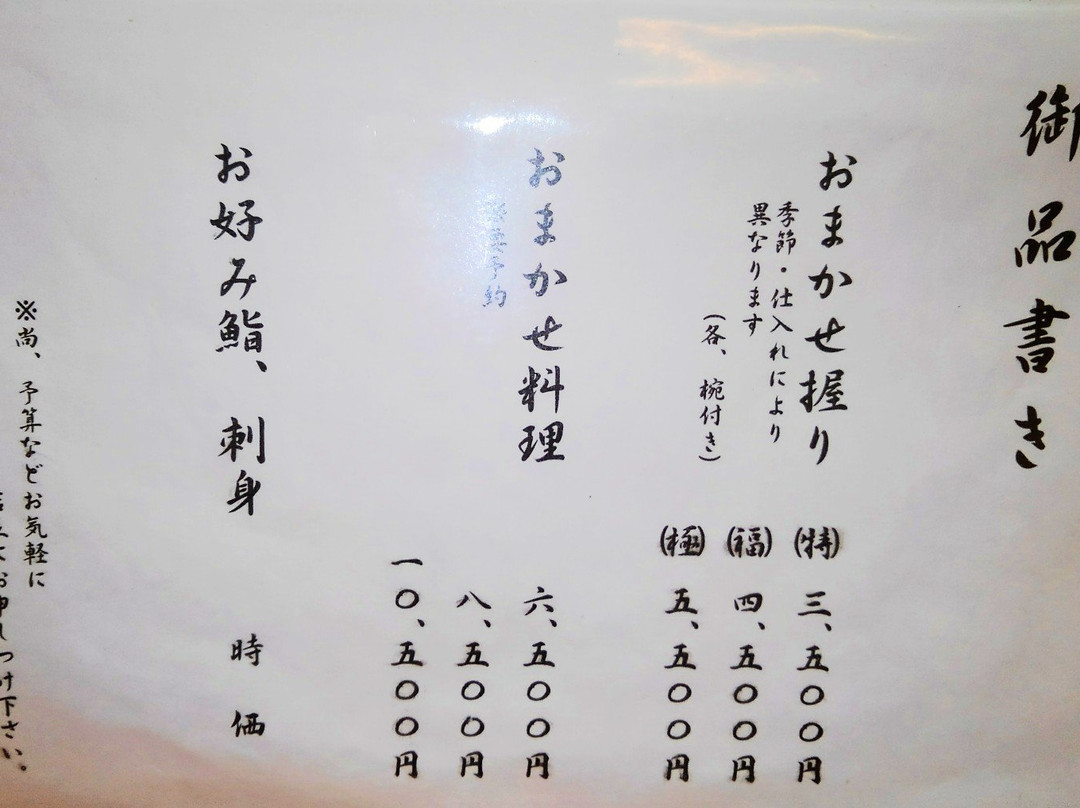 御品書き
おまかせ握り
季節・仕入れにより
異なります
(各、椀付き)
(特) 三、五〇〇円
(福) 四、五〇〇円
(極) 五、五〇〇円
おまかせ料理
予約
六、五〇〇円
八、五〇〇円
一〇、五〇〇円
お好み鮨、刺身 時価
※尚、予算などお気軽に
お申しつけ下さい。